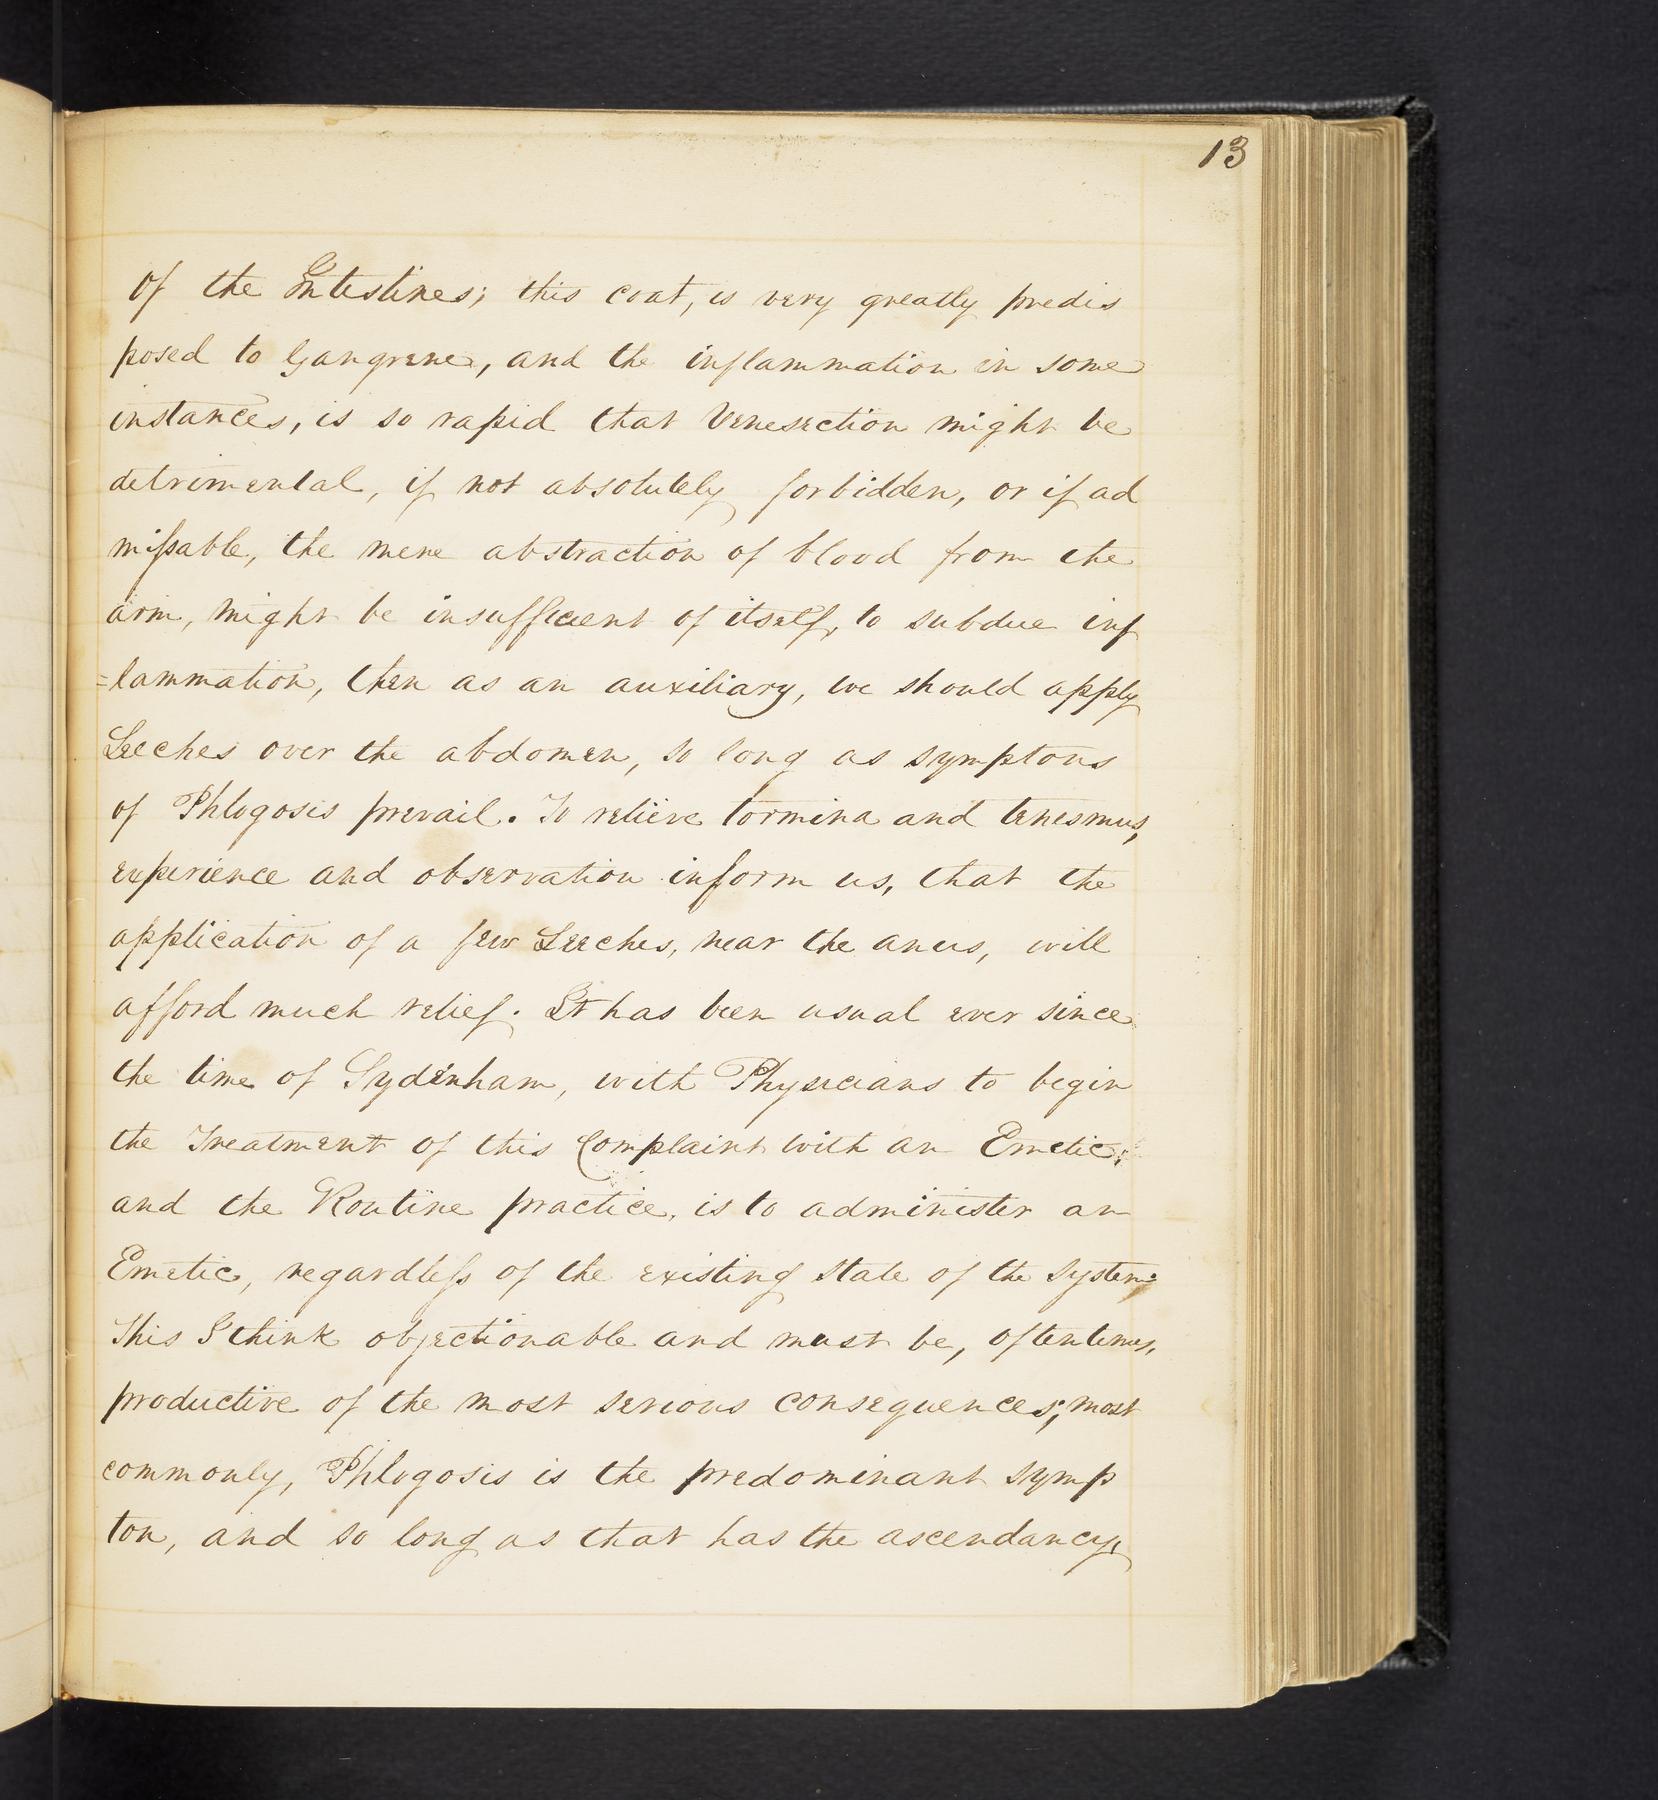 13
of the Intestines; this coat, is very greatly predis
posed to Gangrene, and the inflammation in some
instances, is so rapid that Venesection might be
detrimental, if not absolutely forbidden, or if ad
missable, the mere abstraction of blood from the
arm, might be insufficient of itself, to subdue inf
=lammation, then as an auxiliary, we should apply
Leeches over the abdomen, so long as symptons
of Phlogosis prevail. To relieve tormina and tenesmus,
experience and observation inform us, that the
application of a few Leeches, near the anus, will
afford much relief. It has been usual ever since
the time of Sydenham, with Physicians to begin
the Treatment of this Complaint with an Emetic;
and the Routine practice, is to administer an
Emetic, regardless of the existing state of the system;
This I think objectionable and must be, oftentimes,
productive of the most serious consequences; most
commonly, Phlogosis is the predominant symp
ton, and so long as that has the ascendancy,